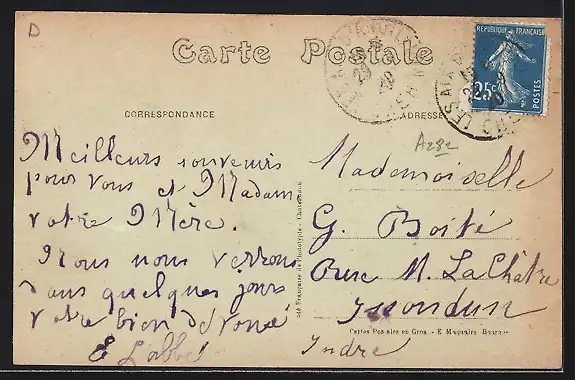 D
Carte Postale
CORRESPONDANCE
ADRESSE
REPUBLIQUE FRANÇAISE
25c
POSTES
LES AIX
CHER
Meilleurs souvenirs
pour vous et Madame
votre Mère.
Nous nous verrons
dans quelques jours
votre bien dévoué
E Labbé
Mademoiselle
G. Boité
Rue M. La Châtre
Issoudun
Indre
Cartes Postales en Gros - E. Maquaire Bourges